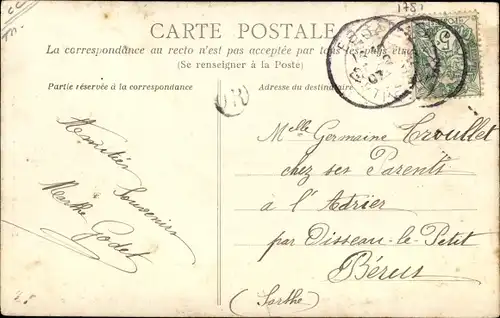 1787
CARTE POSTALE
La correspondance au recto n'est pas acceptée par tous les pays étrangers
(Se renseigner à la Poste)
Partie réservée à la correspondance
Adresse du destinataire
OR
Amitiés Souvenirs
Marthe Godet
Melle Germaine Croullet
chez ses Parents
à l'Adrier
par Oisseau-le-Petit
Bérus
(Sarthe)